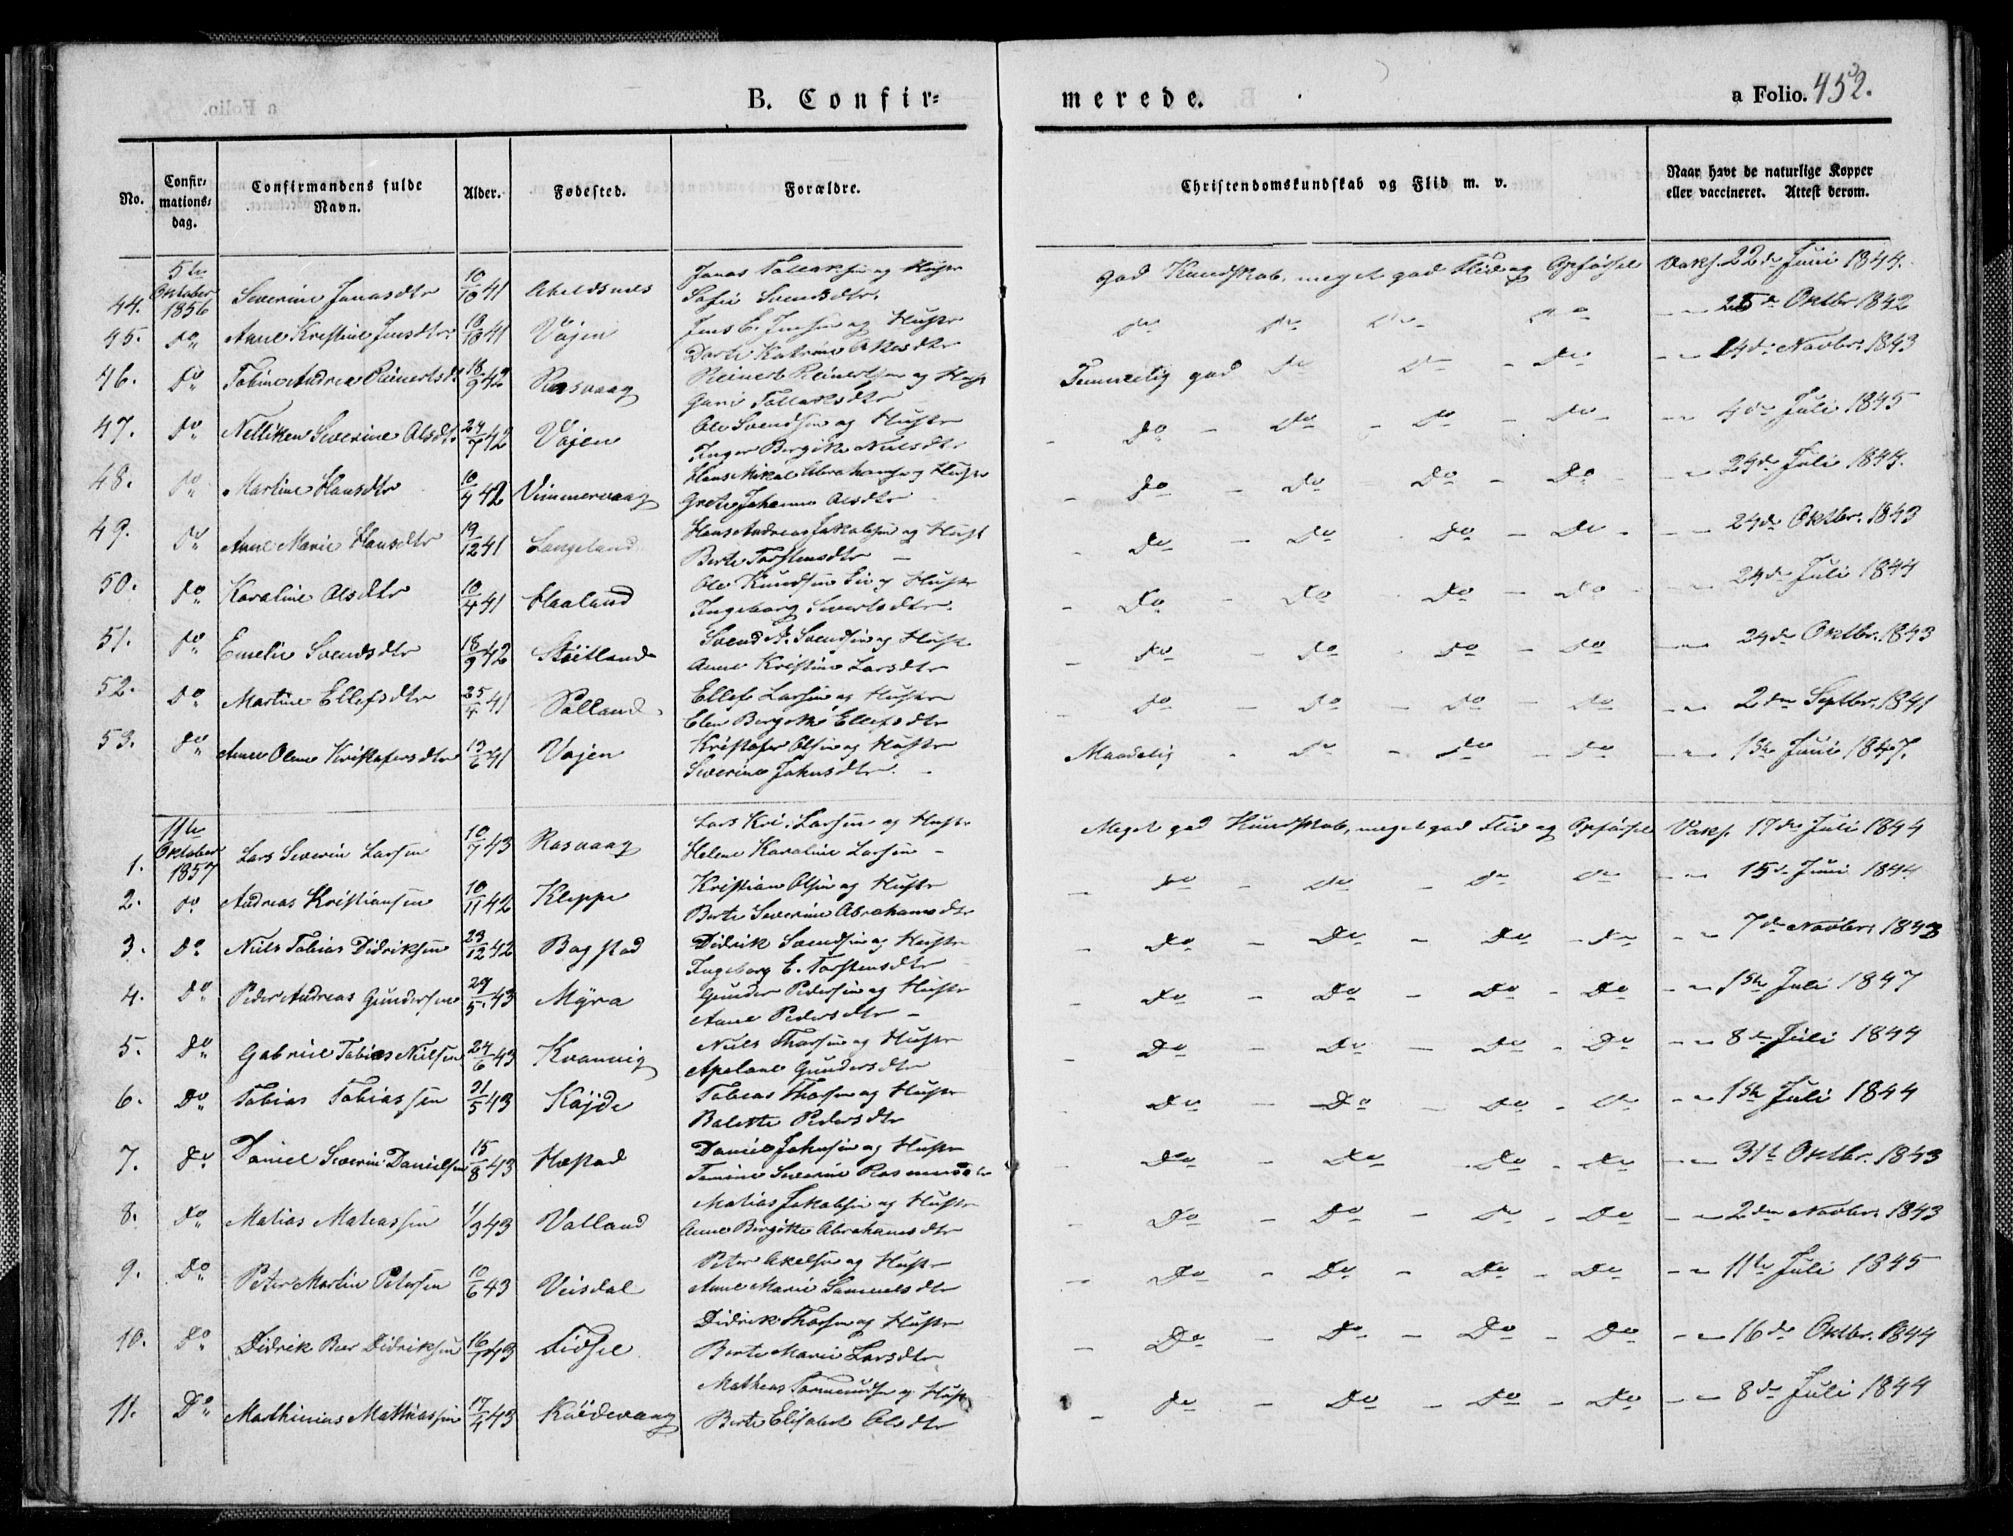 B. Confir=
merede.
a Folio. 452.
No.
Confir=
mations=
dag.
Confirmandens fulde
Navn.
Alder.
Fødested.
Forældre.
Christendomskundskab og Flid m. v.
Naar havt de naturlige Kopper
eller vaccineret. Attest derom.
44. 5te Oktober 1856 Severine Jonasdtr 10/10 41 Abeldsnes Jonas Tollaksen og Hustr
Sofie Svendsdtr. god Kundskab, meget god Flid og Opførsel Vaks. 22de Juni 1844.
45. Do Anne Kristine Jensdtr 18/10 41 Vågen Jens C. Jensen og Hustr
Dorte Katrine Akesdtr do do do do - 25de Oktbr 1842
46. Do Tobine Andrea Reinertsdtr 18/9 42 Rasvaag Reinert Reinertsen og Hustr
Guri Tollaksdtr Temmelig god do do - do - 24de Novbr. 1843
47. Do Nelliken Severine Olsdtr 24/7 42 Vågen Ole Svendsen og Hustr
Inger Bergitte Nielsdtr - do - do - do - do - 4de Juli 1845
48. Do Martine Hansdtr 10/4 42 Vimmervaag Hans Mikal Abrahamsen og Hustr
Grete Johanne Olsdtr - do - do - do - do - 24de Juli 1844.
49. Do Anne Marie Hansdtr 19/12 41 Langeland Hans Andreas Jakobsen og Hustr
Berte Torstensdtr - do - do - do - do - 24de Oktbr. 1843
50. Do Karoline Olsdtr 10/4 41 Haaland Ole Knudsen og Hustr
Ingeborg Sivertsdtr. - do - do - do - do - 24de Juli 1844
51. Do Emelie Svendsdtr 18/9 42 Stöitland Svend A. Svendsen og Hustr
Anne Kristine Larsdtr - do - do - do - do - 24de Oktbr. 1843
52. Do Martine Ellefsdtr 41 Ellef Larsen og Hustru
Elen Bergitte Ellefsdtr - do - do - do - do - 2den Septbr. 1841
53. Do Anne Oline Kristofersdtr 6 41 Vågen Kristofer Olsen og Hustr
Severine Johnsdtr. - Maadelig - do - do - do - 1ste Juni 1847.
1. 11te Oktober 1857 Lars Severin Larsen 10/7 43 Rasvaag Lars Kri. Larsen og Hustr
Helene Karoline Larsen - Meget god Kundskab, meget god Flid og Opførsel Vaks. 17de Juli 1844
2. do Andreas Kristiansen 10/11 42 Kleppe Kristian Olsen og Hustr
Berte Severine Abrahamsdtr - do - do - do do - 15de Juni 1844
3. Do Niels Tobias Didriksen 23/12 42 Bagstad Didrik Svendsen og Hustr
Ingeborg E. Torstensdtr - do - do - do - do - 7de Novbr. 1843
4. Do Peder Andreas Gundersen 29/5 43 Myra Gunder Pedersen og Hustr
Anne Pedersdtr - - do - do - do - do - 1ste Juli 1847
5. Do Gabriel Tobias Nielsen 24/6 43 Kvannig Niels Thorsen og Hustr
Apelone Gundersdtr - do - do - do - do - 8de Juli 1844
6. Do Tobias Tobiassen 21/5 43 Köjde Tobias Thorsen og Hustr
Balette Pedersdtr - do - do - do - do - 1ste Juli 1844
7. Do Daniel Severin Danielsen 15/8 43 Hæstad Daniel Johnsen og Hustr
Tomine Severine Rasmusdtr - do - do - do - do - 31te Oktbr. 1843
8. Do Matias Matiassen 1/3 43 Vatland Matias Jakobsen og Hustr
Anne Birgitte Abrahamsdtr - do - do - do - do - 2den Novbr. 1843
9. Do Peter Martin Petersen 10/6 43 Veisdal Peter Akelsen og Hustr
Anne Marie Samuelsdtr - do - do - do - do - 11te Juli 1845
10. Do Didrik Beer Didriksen 43 Lidsel Didrik Thorsen og Hustr
Berte Marie Larsdtr - do - do - do - do - 16de Oktbr. 1844
11. Do Mathinius Mathiassen 43 Köidevaag Mathias Tormundsen og Hustr
Berte Elisabet Olsdtr - do - do - do - do - 8de Juli 1844